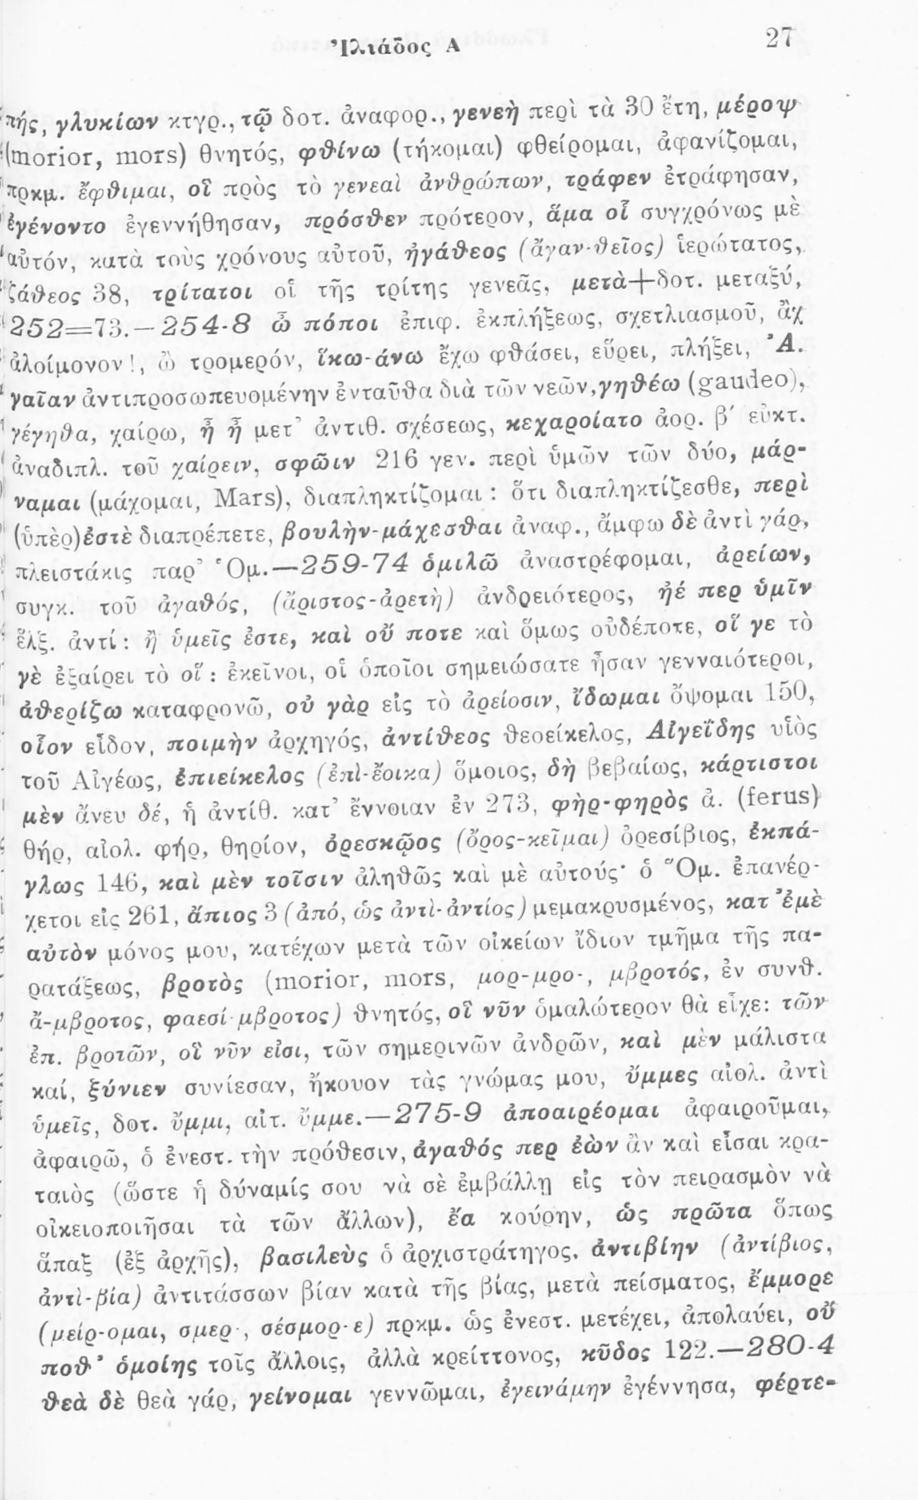 Ἰλιάδος Α
27
πής, γλυκίων κτγρ., τῷ δοτ. ἀναφορ., γενεὴ περὶ τὰ 30 ἔτη, μέροψ
(morior, mors) θνητός, φθίνω (τήκομαι) φθείρομαι, ἀφανίζομαι,
πρκμ. ἔφθιμαι, οἳ πρὸς τὸ γενεαὶ ἀνθρώπων, τράφεν ἐτράφησαν,
ἐγένοντο ἐγεννήθησαν, πρόσθεν πρότερον, ἅμα οἷ συγχρόνως μὲ
αὐτόν, κατὰ τοὺς χρόνους αὐτοῦ, ἠγάθεος (ἄγαν-θεῖος) ἱερώτατος,
ζάθεος 38, τρίτατοι οἱ τῆς τρίτης γενεᾶς, μετὰ+δοτ. μεταξύ,
252=73.—254-8 ὦ πόποι ἐπιφ. ἐκπλήξεως, σχετλιασμοῦ, ἂχ
ἀλοίμονον!, ὢ τρομερόν, ἵκω-άνω ἔχω φθάσει, εὕρει, πλήξει, Ἀ.
γαῖαν ἀντιπροσωπευομένην ἐνταῦθα διὰ τῶν νεῶν, γηθέω (gaudeo),
γέγηθα, χαίρω, ἦ ἦ μετ' ἀντιθ. σχέσεως, κεχαροίατο ἀορ. β' εὐκτ.
ἀναδιπλ. τοῦ χαίρειν, σφῶιν 216 γεν. περὶ ὑμῶν τῶν δύο, μάρ-
ναμαι (μάχομαι, Mars), διαπληκτίζομαι : ὅτι διαπληκτίζεσθε, περὶ
(ὑπὲρ)ἐστὲ διαπρέπετε, βουλὴν-μάχεσθαι ἀναφ., ἄμφω δὲ ἀντὶ γάρ,
πλειστάκις παρ' Ὁμ.—259-74 ὁμιλῶ ἀναστρέφομαι, ἀρείων,
συγκ. τοῦ ἀγαθός, (ἄριστος-ἀρετὴ) ἀνδρειότερος, ἠέ περ ὑμῖν
ἕλξ. ἀντί : ἢ ὑμεῖς ἐστε, καὶ οὔ ποτε καὶ ὅμως οὐδέποτε, οἵ γε τὸ
γὲ ἐξαίρει τὸ οἵ : ἐκεῖνοι, οἱ ὁποῖοι σημειώσατε ἦσαν γενναιότεροι,
ἀθερίζω καταφρονῶ, οὐ γὰρ εἰς τὸ ἀρείοσιν, ἴδωμαι ὄψομαι 150,
οἷον εἶδον, ποιμὴν ἀρχηγός, ἀντίθεος θεοείκελος, Αἰγεΐδης υἱὸς
τοῦ Αἰγέως, ἐπιείκελος (ἐπὶ-ἔοικα) ὅμοιος, δὴ βεβαίως, κάρτιστοι
μὲν ἄνευ δέ, ἡ ἀντίθ. κατ' ἔννοιαν ἐν 273, φὴρ-φηρὸς ἀ. (ferus)
θήρ, αἰολ. φήρ, θηρίον, ὀρεσκῷος (ὄρος-κεῖμαι) ὀρεσίβιος, ἐκπά-
γλως 146, καὶ μὲν τοῖσιν ἀληθῶς καὶ μὲ αὐτούς· ὁ Ὅμ. ἐπανέρ-
χετοι εἰς 261, ἄπιος 3 (ἀπό, ὡς ἀντὶ-ἀντίος) μεμακρυσμένος, κατ' ἐμὲ
αὐτὸν μόνος μου, κατέχων μετὰ τῶν οἰκείων ἴδιον τμῆμα τῆς πα-
ρατάξεως, βροτὸς (morior, mors, μορ-μρο-, μβροτός, ἐν συνθ.
ἄ-μβροτος, φαεσί-μβροτος) θνητός, οἳ νῦν ὁμαλώτερον θὰ εἶχε: τῶν
ἐπ. βροτῶν, οἳ νῦν εἰσι, τῶν σημερινῶν ἀνδρῶν, καὶ μὲν μάλιστα
καί, ξύνιεν συνίεσαν, ἤκουον τὰς γνώμας μου, ὔμμες αἰολ. ἀντὶ
ὑμεῖς, δοτ. ὔμμι, αἰτ. ὔμμε.—275-9 ἀποαιρέομαι ἀφαιροῦμαι,
ἀφαιρῶ, ὁ ἐνεστ. τὴν πρόθεσιν, ἀγαθός περ ἐὼν ἂν καὶ εἶσαι κρα-
ταιὸς (ὥστε ἡ δύναμίς σου νὰ σὲ ἐμβάλλῃ εἰς τὸν πειρασμὸν νὰ
οἰκειοποιῆσαι τὰ τῶν ἄλλων), ἔα κούρην, ὡς πρῶτα ὅπως
ἅπαξ (ἐξ ἀρχῆς), βασιλεὺς ὁ ἀρχιστράτηγος, ἀντιβίην (ἀντίβιος,
ἀντὶ-βία) ἀντιτάσσων βίαν κατὰ τῆς βίας, μετὰ πείσματος, ἔμμορε
(μείρ-ομαι, σμερ-, σέσμορ-ε) πρκμ. ὡς ἐνεστ. μετέχει, ἀπολαύει, οὔ
ποθ' ὁμοίης τοῖς ἄλλοις, ἀλλὰ κρείττονος, κῦδος 122.—280-4
θεὰ δὲ θεὰ γάρ, γείνομαι γεννῶμαι, ἐγεινάμην ἐγέννησα, φέρτε-